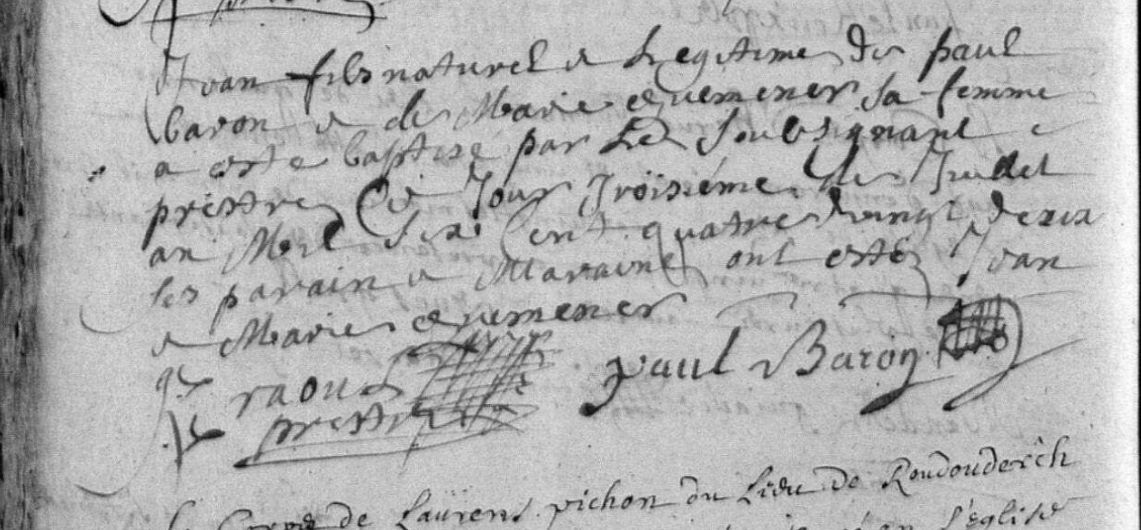 Ivan fils naturel et Legitime De paul
baron et de Marie quemener sa femme
a este baptise par Le Soubsignant
prestre Ce Jour Troisiéme de Juillet
an Mil Six Cent quatre vingt deux
les parain et Maraine ont estés Ivan
et Marie quemener
raoul paul Baron
prestre
Corps de Laurens pichon du Lieu de Roudouderch
l'église